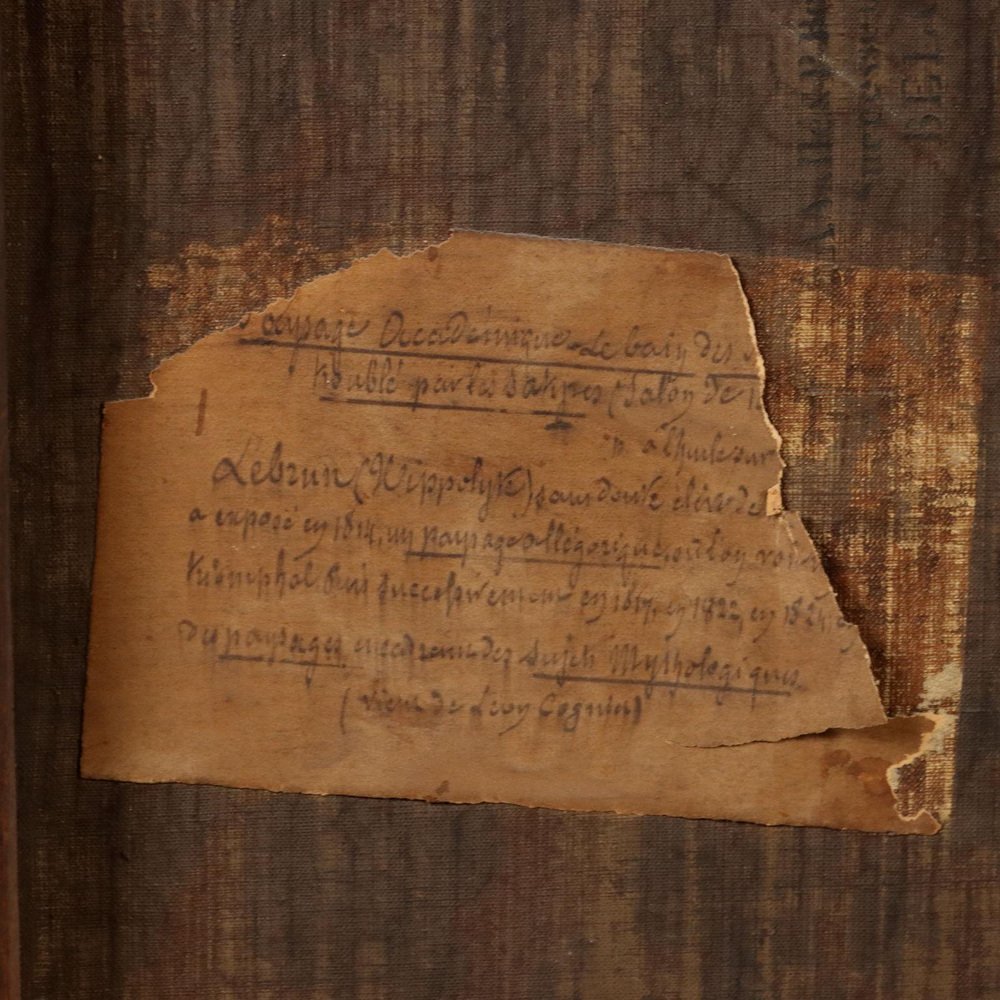 Paysage Académique Le bain des
troublé par les Satyres (Salon de 18
à l'huile sur
Lebrun (Hippolyte) sans doute élève de
a exposé en 1814, un paysage allégorique, où l'on voit
triomphal puis successivement en 1817, en 1822, en 1824,
des paysages encadrant des sujets Mythologiques.
(vient de Léon Cogniet)
BEL